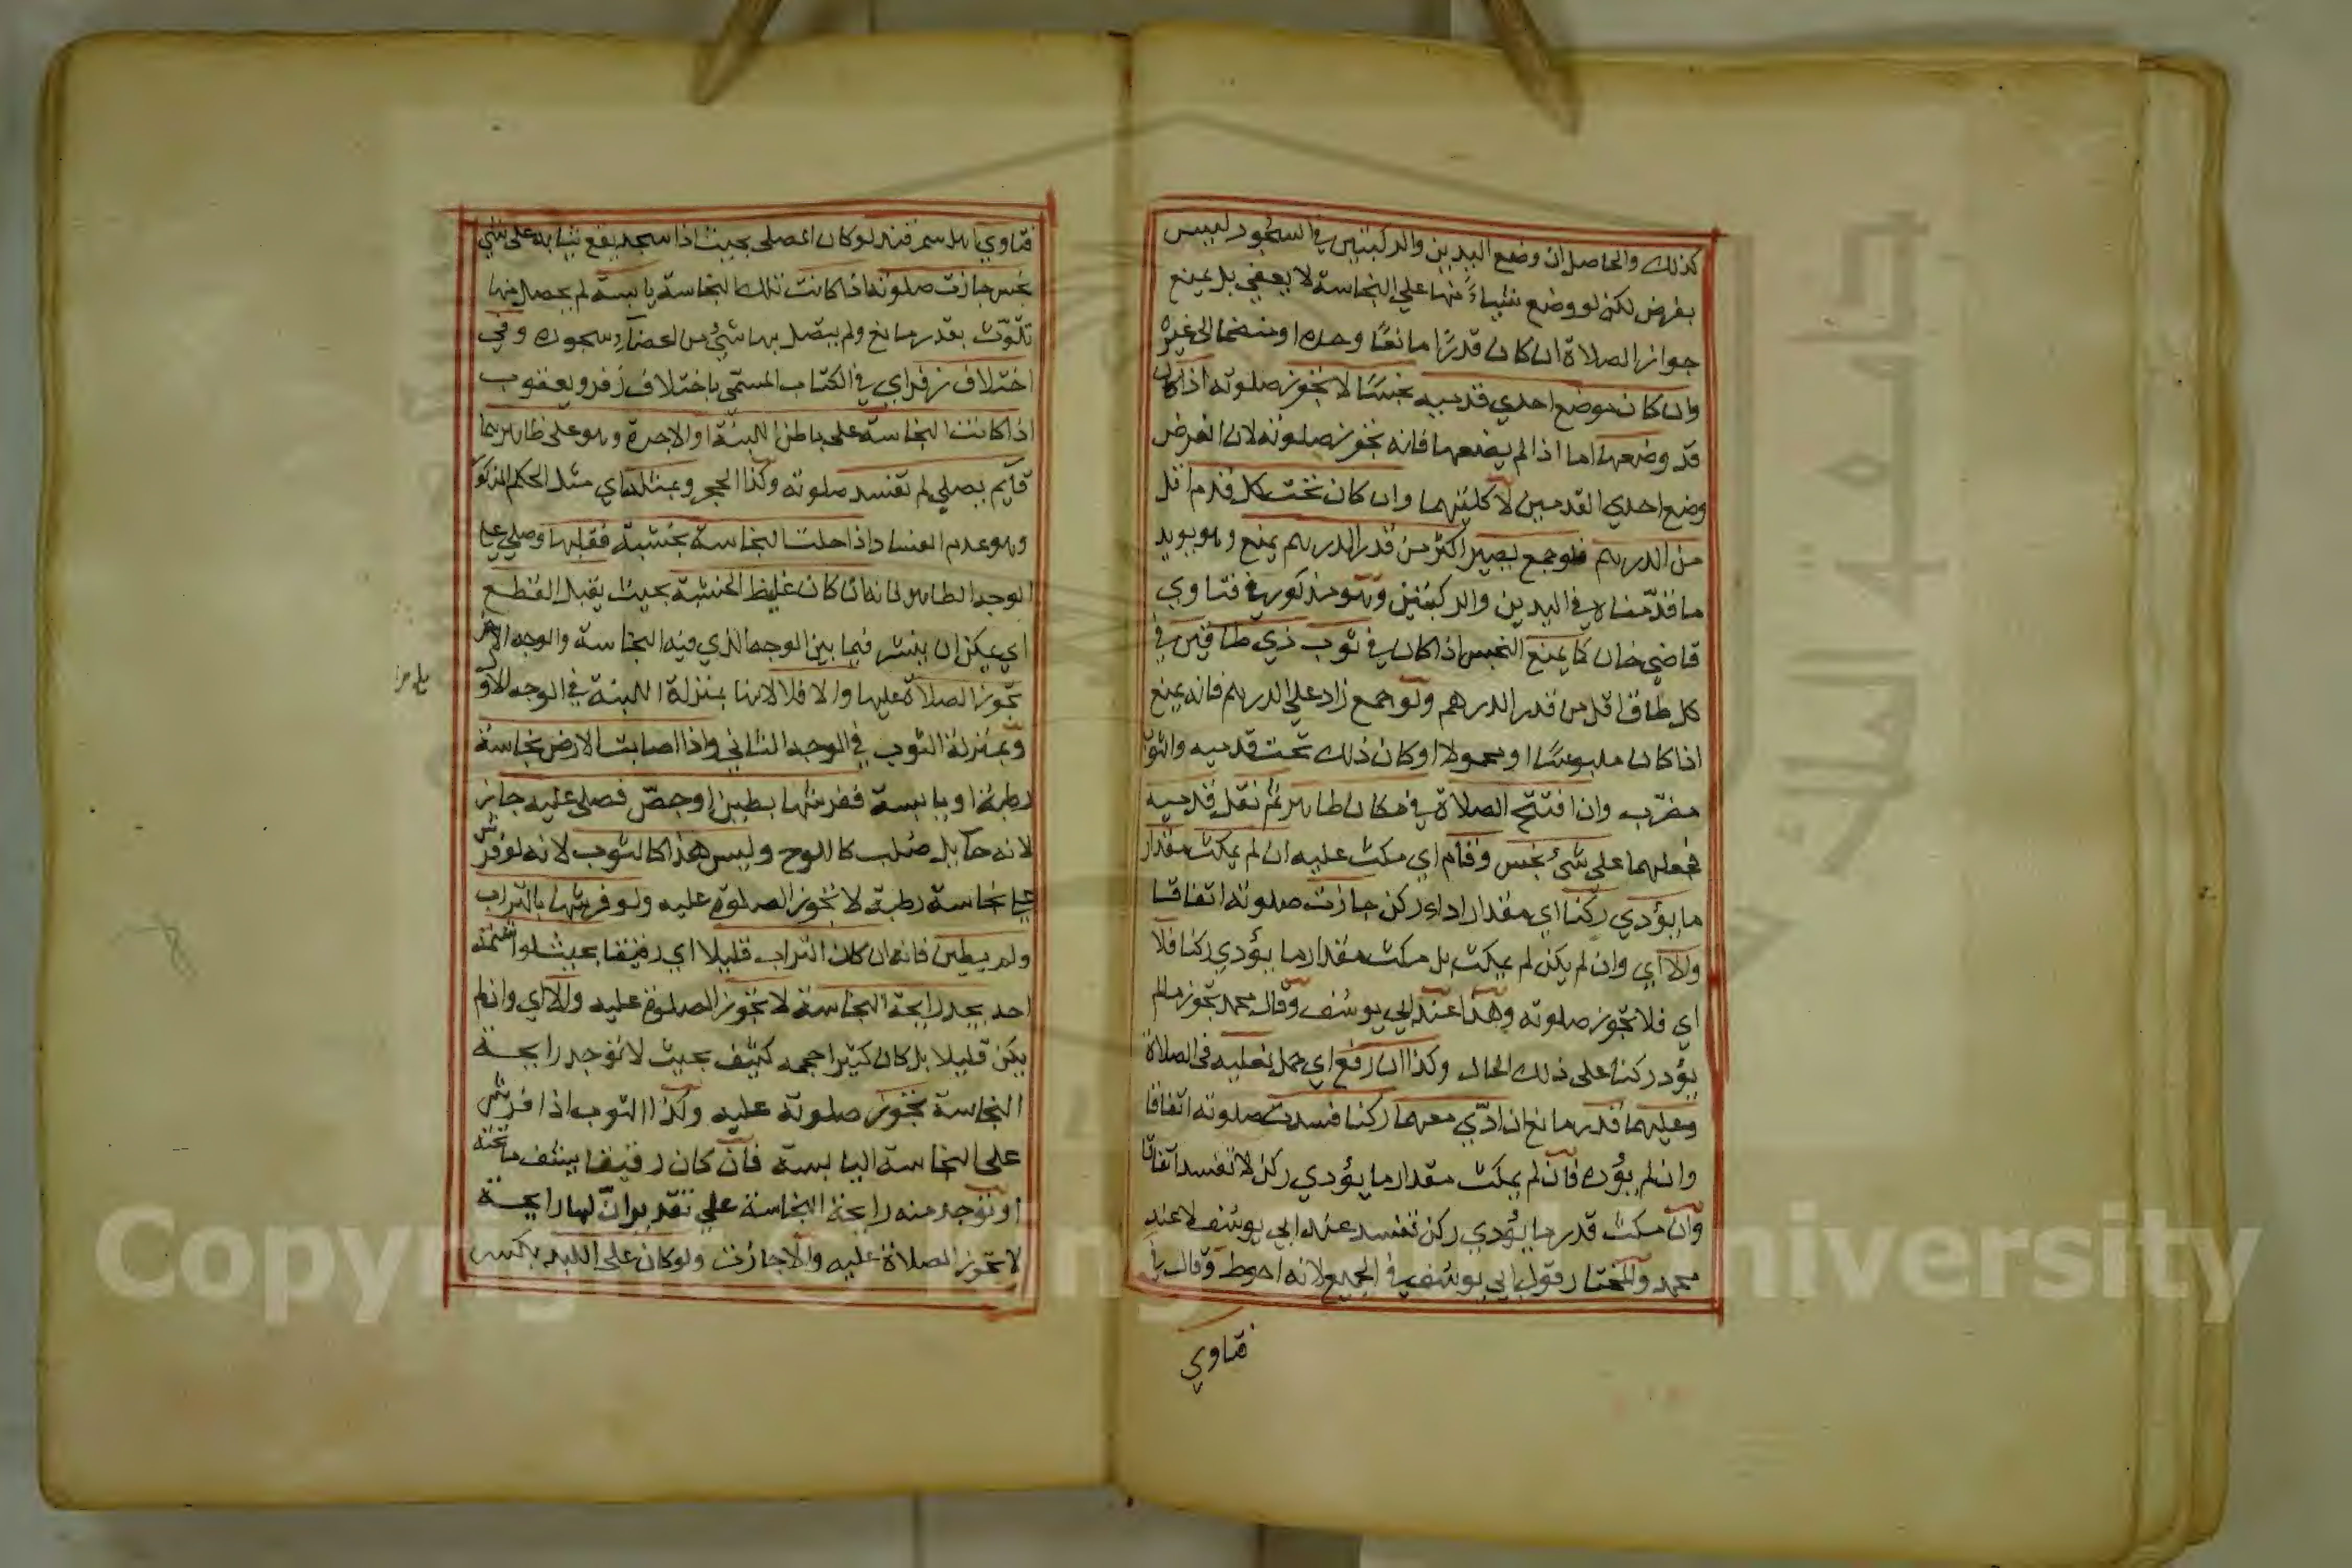 كذلك والحاصل ان وضع اليدين والركبتين في السجود ليس
بفرض لكن لو وضع شياءً منها على النجاسة لا يعفي بل يمنع
جواز الصلاة ان كان قدرًا مانعًا وحده او منضما الى غيره
وان كان موضع احدي قدميه نجسًا لا يجوز صلوته اذا كان
قد وضعها اما اذا لم يضعها فانه يجوز صلوته لان الفرض
وضع احدي القدمين لا كلتيهما وان كان تحت كل قدم اقل
من الدرهم فلو جمع يصير اكثر من قدر الدرهم يمنع وهو يويد
ما قدّمناه في اليدين والركبتين وهو مذكور في فتاوي
قاضي خان كما يمنع النجس اذا كان في ثوب ذي طاقين في
كل طاق اقل من قدر الدرهم ولو جمع زاد علي الدرهم فانه يمنع
اذا كان ملبوسًا او محمولا او كان ذلك تحت قدميه والثوب
مضرّب وان افتتح الصلاة في مكان طاهر ثم نقل قدميه
فجعلهما على شئ نجس وقام اي مكث عليه ان لم يمكث مقدار
ما يؤدي ركنا اي مقدار اداء ركن جازت صلوته اتفاقا
والا اي وان لم يكن لم يمكث بل مكث مقدار ما يؤدي ركنا فلا
اي فلا تجوز صلوته وهذا عند ابي يوسف وقال محمد تجوز مالم
يؤد ركنا على ذلك الحال وكذا ان رفع اي حمل نعليه في الصلاة
وعليهما قدر مانع ان ادّي معهما ركنا فسدت صلوته اتفاقا
وان لم يؤده فان لم يمكث مقدار ما يؤدي ركن لا تفسد اتفاقا
وان مكث قدر ما يؤدي ركن تفسد عند ابي يوسف لا عند
محمد والمختار قول ابي يوسف في الجميع لانه احوط وقال في
فتاوي
فتاوي اهل سمرقند لو كان المصلى بحيث اذا سجد يقع ثيابه على شئ
نجس جازت صلوته اذا كانت تلك النجاسة يابسة لم يحصل منها
تلوّث بقدر مانع ولم يتصل بها شئ من اعضاء سجوده وفي
اختلاف زفر اي في الكتاب المسمى باختلاف زفر ويعقوب
اذا كانت النجاسة على باطن اللبنة او الاجرة وهو على ظاهرها
قائم يصلي لم تفسد صلوته وكذا الحجر وبمثله اي مثل الحكم المذكور
وهو عدم الفساد اذا حلت النجاسة بخشبة فقلبها وصلي على
الوجه الطاهر فانه ان كان غلظ الخشبة بحيث يقبل القطع
اي يمكن ان ينشر فيما بين الوجه الذي فيه النجاسة والوجه الاخر
تجوز الصلاة عليها والا فلا لانها بمنزلة اللبنة في الوجه الاول
وبمنزلة الثوب في الوجه الثاني واذا اصابت الارض نجاسة
رطبة او يابسة ففرشها بطين او جصّ فصلى عليه جاز
لانه حايل صلب كاللوح وليس هذا كالثوب لانه لو فرش
على نجاسة رطبة لا تجوز الصلوة عليه ولو فرشها بالتراب
ولم يطين فانه ان كان التراب قليلا اي رقيقا بحيث لو استشمه
احد يجد رايحة النجاسة لا تجوز الصلوة عليه والا اي وان لم
يكن قليلا بل كان كثيرا حجمه كثيف بحيث لا توجد رايحة
النجاسة تجوز صلوته عليه وكذا الثوب اذا فرش
على النجاسة اليابسة فان كان رقيقا يشف ما تحته
او توجد منه رايحة النجاسة علي تقدير ان لها رايحة
لا تجوز الصلاة عليه والا جازت ولو كان على اللبد بالكسر
Copyright © King University